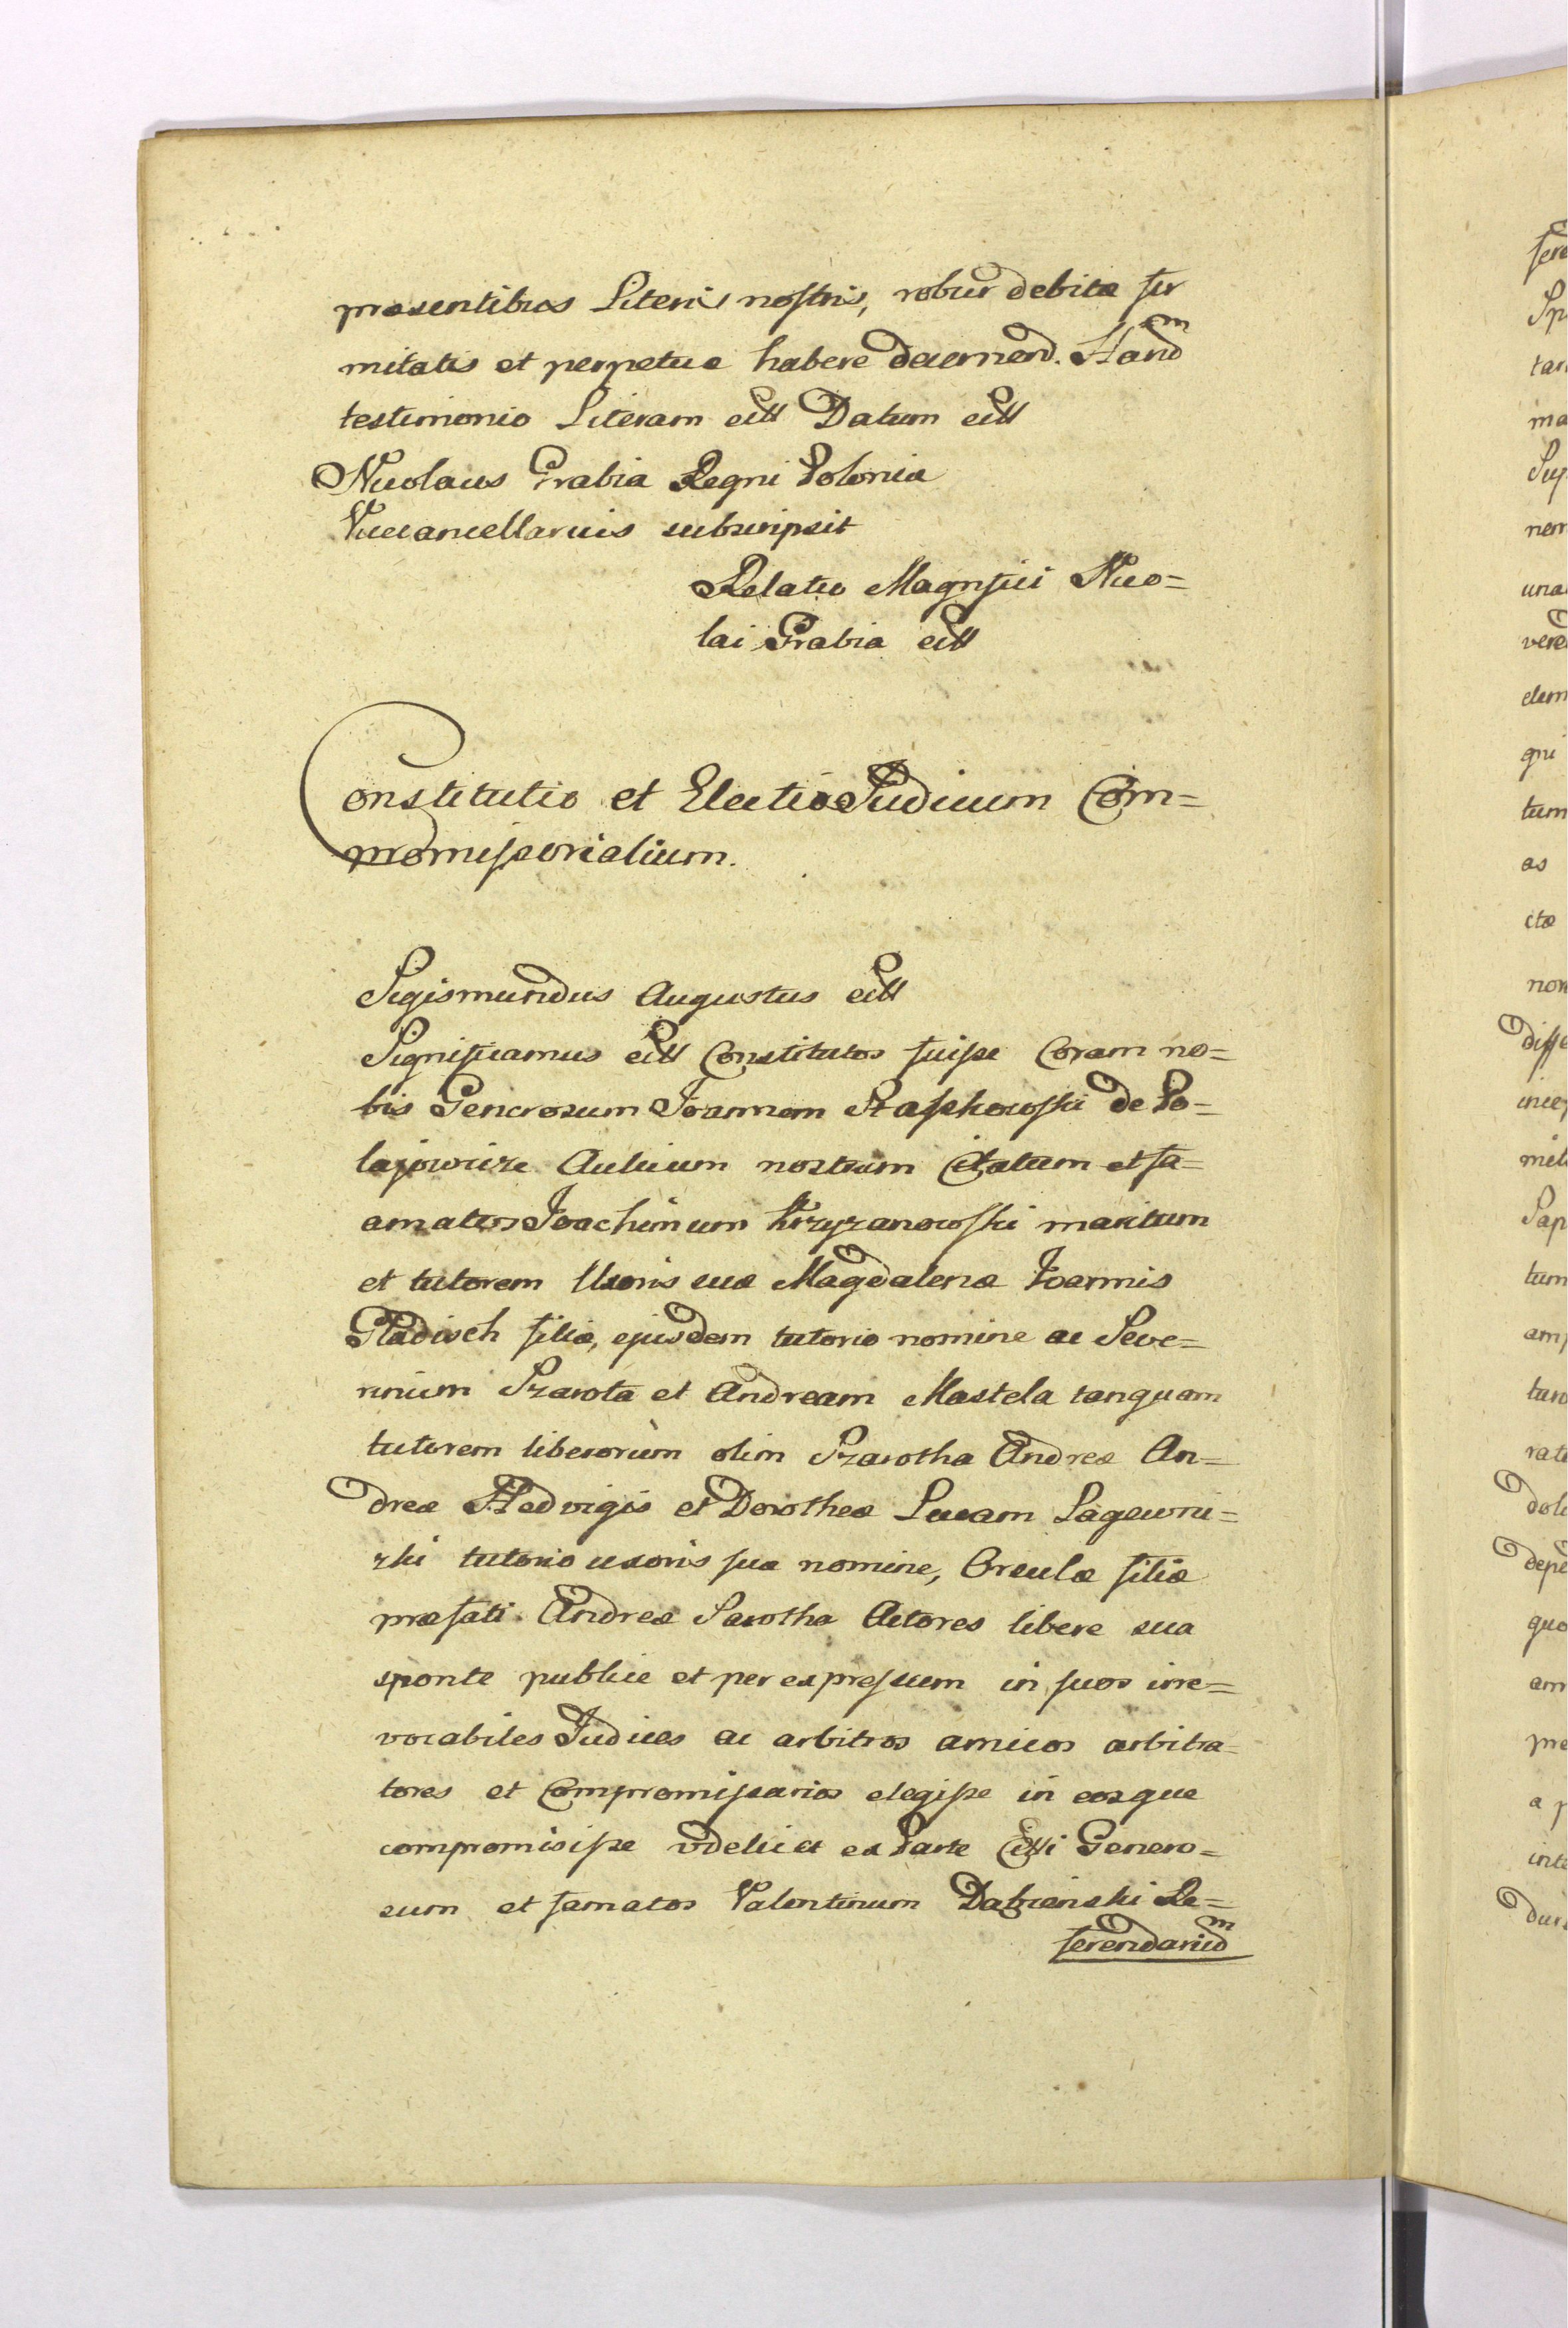 præsentibus Literis nostris, robur debitæ fir
mitatis et perpetuæ habere decernend. Harũ
testimonio Literam ect Datum ect
Nicolaus Grabia Regni Poloniæ
Vicecancellarius subscripsit
Relatio Magnifici Nico=
lai Grabia ect
Constitutio et Electio Judicum Com=
promissorialium.
Sigismundus Augustus ect
Significamus ect Constitutos fuisse Coram no=
bis Generosum Joannem Staszkowski de Po=
lajowicze Aulicum nostrum Citatum et fa=
amatos Joachimum Krzyzanowski maritum
et tutorem Uxoris suæ Magdalenæ Joannis
Gladisch filiæ, ejusdem tutorio nomine ac Seve=
rinum Szarota et Andream Mastela tanquam
tutorem liberorum olim Szarotha Andreæ An=
dreæ Hedvigis et Dorotheæ Lucam Lagewni=
zki tutorio uxoris suæ nomine, Orsulæ filiæ
præfati Andreæ Sarotha Actores libere sua
sponte publice et per expressum in suos irre=
vocabiles Judices ac arbitros amicos arbitra=
tores et Compromissarios elegisse in eosque
compromisisse videlicet ex Parte Citti Genero=
sum et famatos Valentinum Dabienski Re=
ferendariũ